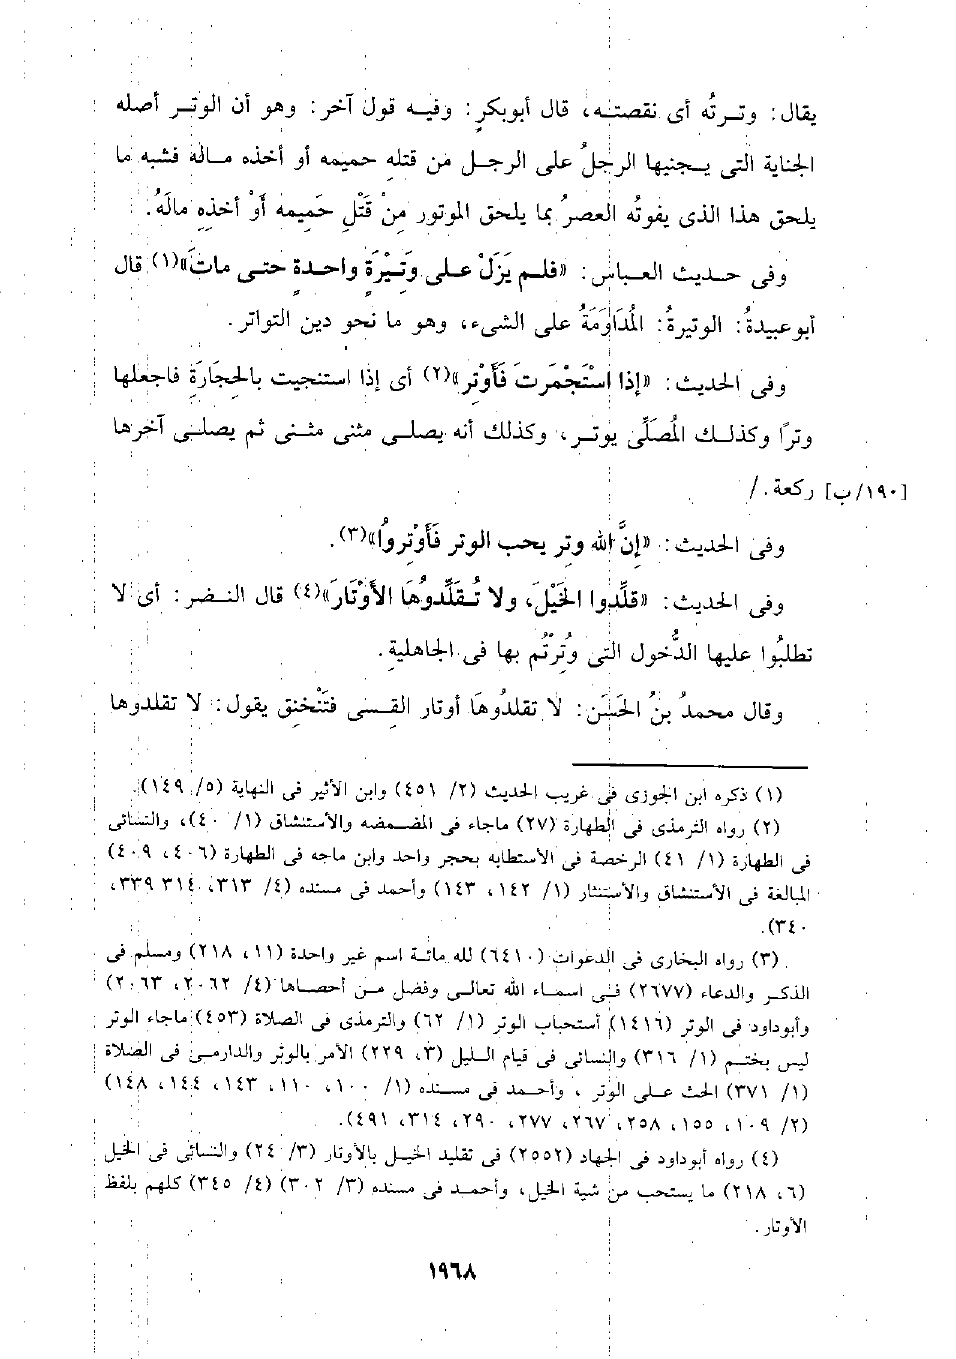 يقال: وتـرتُه أى نقصتـه، قال أبوبكرٍ: وفيـه قول آخر: وهو أن الوتـر أصله
الجناية التى يـجنيها الرجلُ على الرجل من قتله حميمه أو أخذه مـاله فشبه ما
يلحق هذا الذى يفوتُه العصرُ بما يلحق الموتور مِنْ قَتْلِ حَميمه أَوْ أخذِه مالَهُ.
وفى حـديث العبـاس: «فلـم يَزَلْ علـى وَتِيْرَةٍ واحـدةٍ حتـى ماتَ»(١) قال
أبوعبيدةُ: الوتيرةُ: المُدَاوَمَةُ على الشىء، وهو ما نحو دين التواتر.
وفى الحديث: «إذا اسْتَجْمَرتَ فَأَوْتِر»(٢) أى إذا استنجيت بالحِجَارَةِ فاجعلها
وترًا وكذلـك المُصَلِّى يوتـر، وكذلك أنه يصلـى مثنى مثـنى ثم يصلـى آخرها
ركعة. / [١٩٠/ب]
وفى الحديث: «إِنَّ الله وتر يحب الوتر فَأَوْتِروُا»(٣).
وفى الحديث: «قلِّدوا الخَيْلَ، ولا تُـقَلِّدُوهَا الأَوْتَارَ»(٤) قال النـضر: أى لا
تطلبُوا عليها الذُّحول التـى وُتِرْتُم بها فى الجاهلية.
وقال محمدُ بنُ الحَسَن: لا تقلدُوهَا أوتار القِسـى فتَنْخنِق يقول: لا تقلدوها
(١) ذكره ابن الجوزى فى غريب الحديث (٢/ ٤٥١) وابن الأثير فى النهاية (٥/ ١٤٩).
(٢) رواه الترمذى فى الطهارة (٢٧) ماجاء فى المضـمضه والأستنشاق (١/ ٤٠)، والنسائى
فى الطهارة (١/ ٤١) الرخصة فى الأستطابه بحجر واحد وابن ماجه فى الطهارة (٤٠٦، ٤٠٩)
المبالغة فى الأستنشاق والأستنثار (١/ ١٤٢، ١٤٣) وأحمد فى مسنده (٤/ ٣١٣، ٣١٤ ٣٣٩،
٣٤٠).
(٣) رواه البخارى فى الدعوات (٦٤١٠) لله مائـة اسم غير واحدة (١١، ٢١٨) ومسلم فى
الذكـر والدعاء (٢٦٧٧) فـى اسمـاء الله تعالـى وفضل مـن أحصـاها (٤/ ٢٠٦٢، ٢٠٦٣)
وأبوداود فى الوتر (١٤١٦) أستحباب الوتر (١/ ٦٢) والترمذى فى الصلاة (٤٥٣) ماجاء الوتر
ليس بحتـم (١/ ٣١٦) والنسائى فى قيام الـليل (٣، ٢٢٩) الأمر بالوتر والدارمـى فى الصلاة
(١/ ٣٧١) الحث علـى الوتر، وأحـمد فى مسنـده (١/ ١٠٠، ١١٠، ١٤٣، ١٤٤، ١٤٨)
(٢/ ١٠٩، ١٥٥، ٢٥٨، ٢٦٧، ٢٧٧، ٢٩٠، ٣١٤، ٤٩١).
(٤) رواه أبوداود فى الجهاد (٢٥٥٢) فى تقليد الخيـل بالأوتار (٣/ ٢٤) والنسائى فى الخيل
(٦، ٢١٨) ما يستحب من شية الخيل، وأحمـد فى مسنده (٣/ ٣٠٢) (٤/ ٣٤٥) كلهم بلفظ
الأوتار.
١٩٦٨